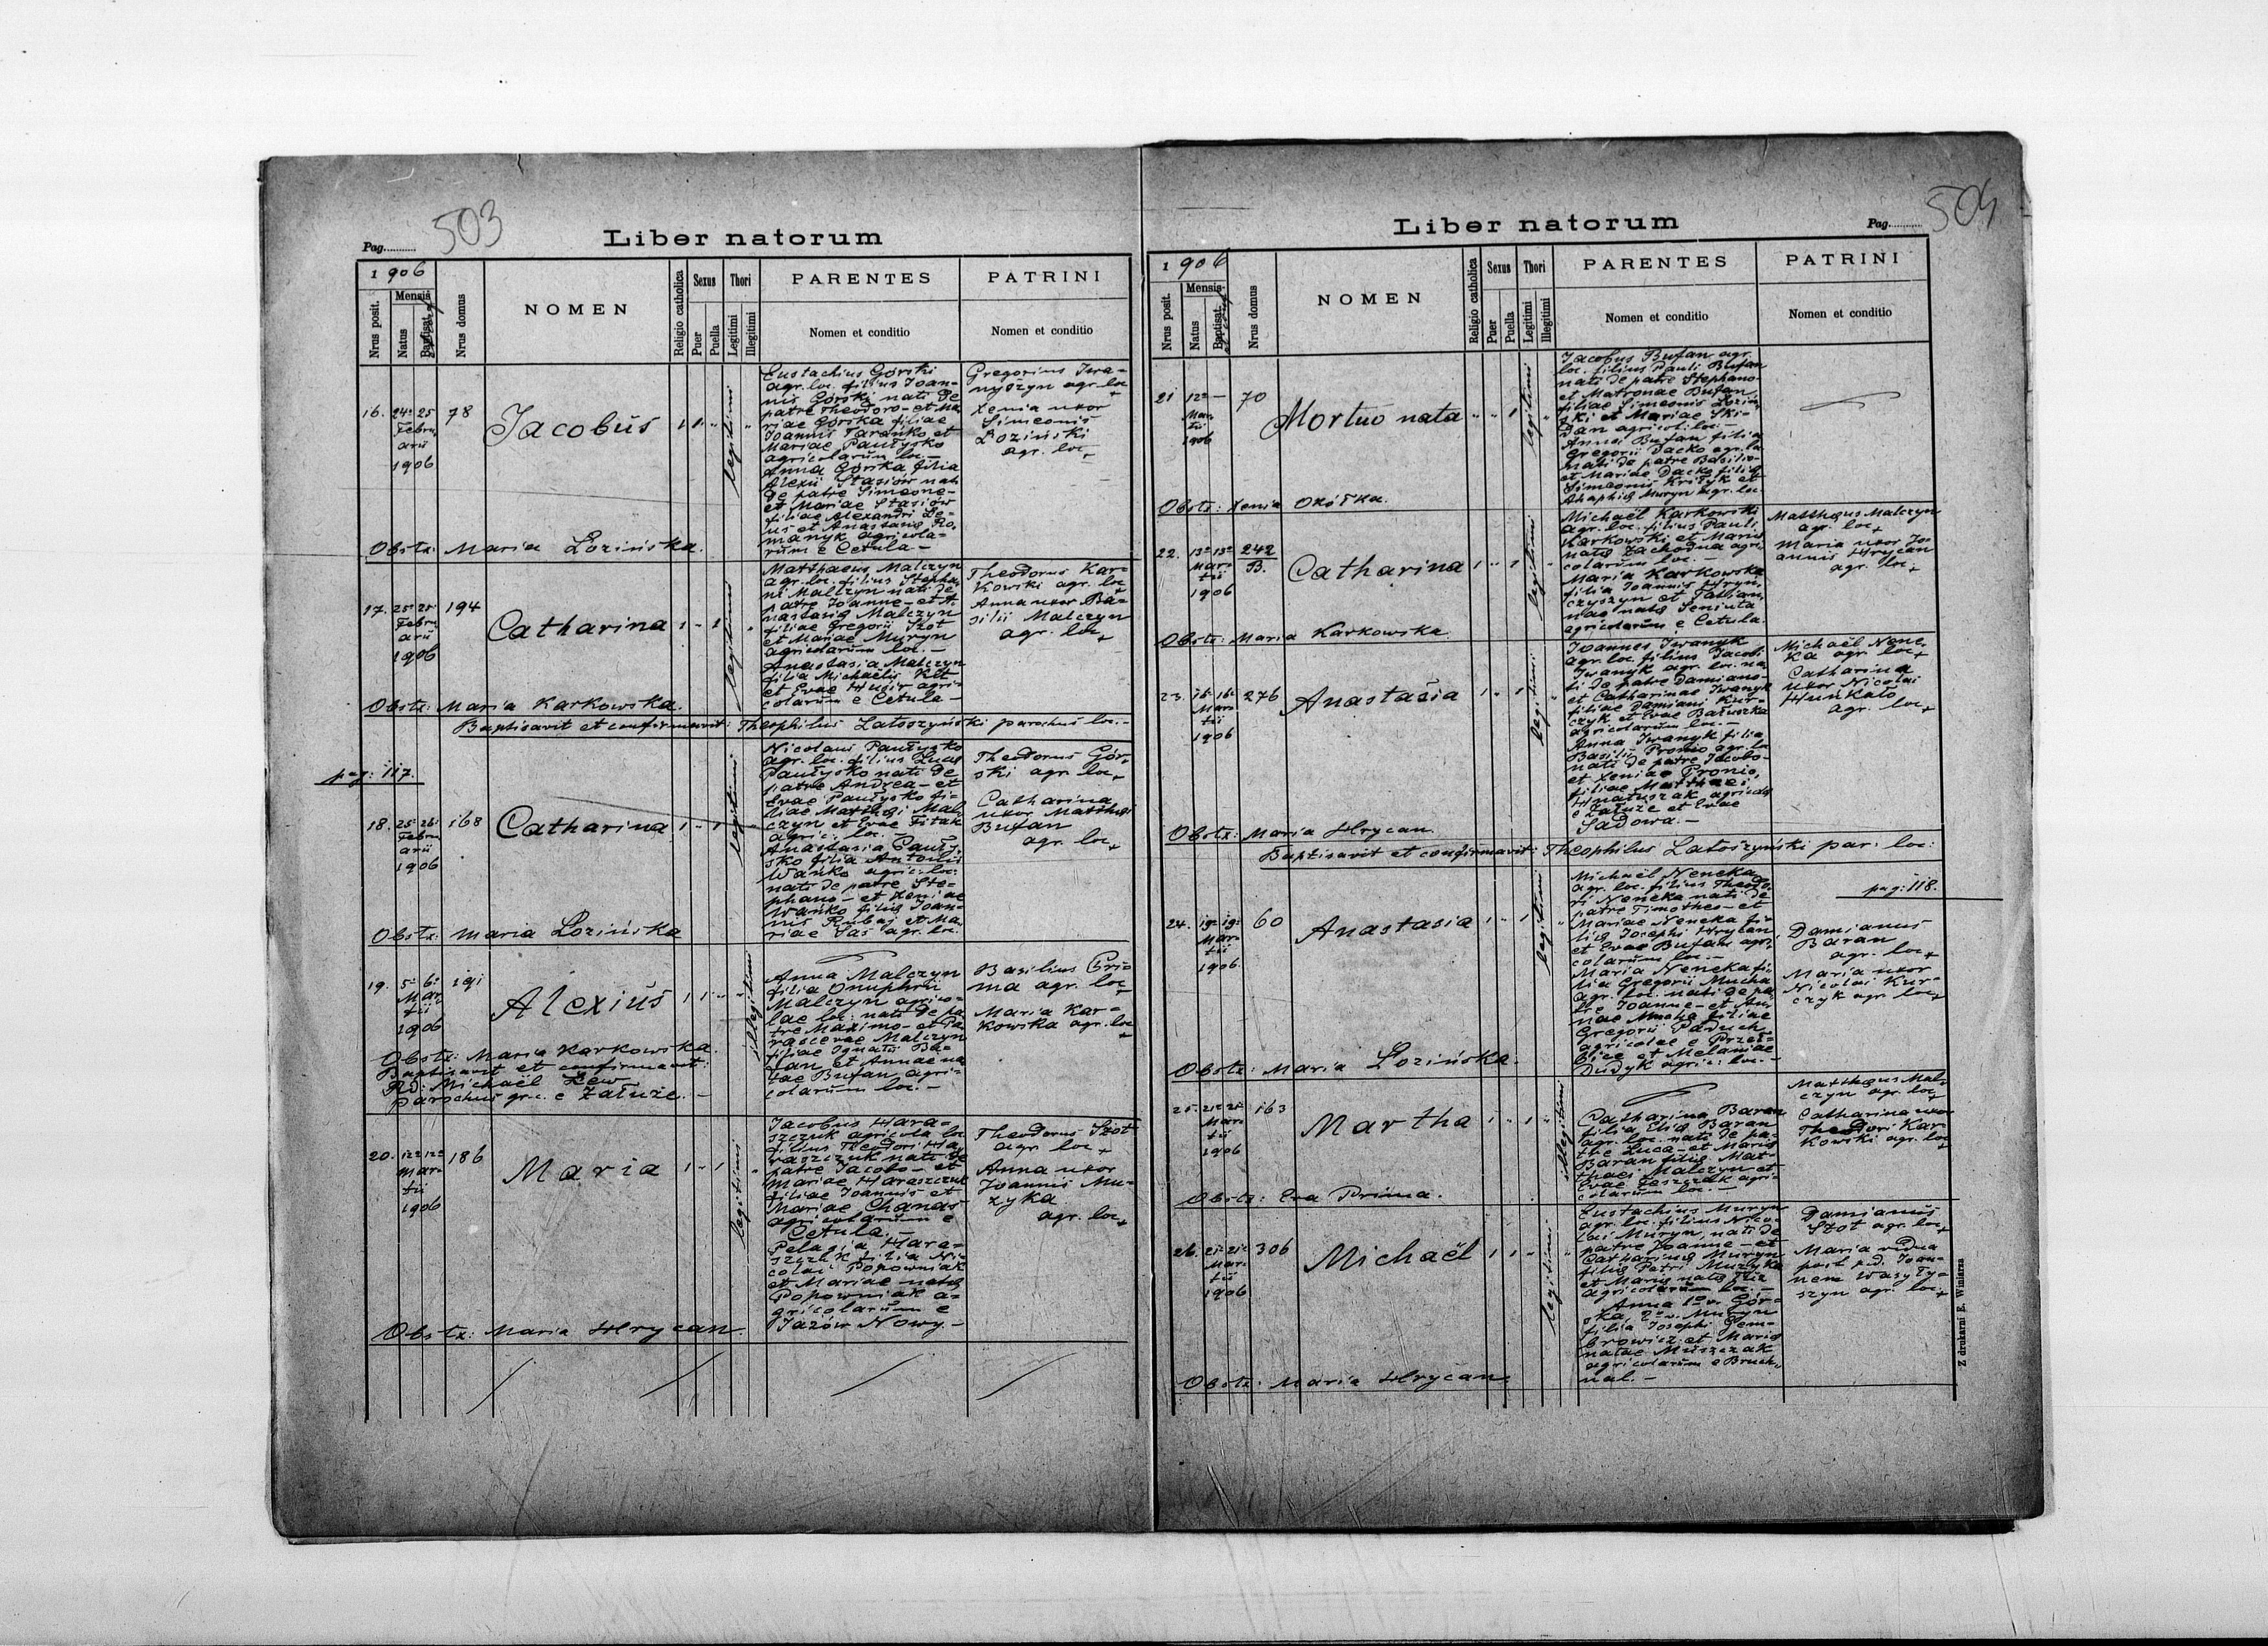 503
Pag.
Liber natorum
1906
Nrus posit.
Mensis
Natus
Baptisat.
Nrus domus
NOMEN
Religio catholica
Sexus
Puer
Puella
Thori
Legitimi
Illegitimi
PARENTES
Nomen et conditio
PATRINI
Nomen et conditio
16.
24
25
Febru
arii
1906
78
Jacobus
1
1
legitimi
Eustachius Górski
agr. loc. filius Joan-
nis Górski nati de
patre Theodoro - et Ma
riae Górska filiae
Joannis Taranko et
Mariae Paułysko
agricolarum loc. -
Anna Górska filia
Alexii Stasiów nati
de patre Simeone -
et Mariae Stasiów
filiae Alexandri
et Anastasiae Ro-
manyk agricola-
rum e Cetula -
Gregorius Iwa-
nyszyn agr. loc
Xenia uxor
Simeonis
Łoziński
agr. loc.
Obstx: Maria Łozińska.
17.
25
25
Febru
arii
1906
194
Catharina
1
1
legitimi
Matthaeus Malczyn
agr. loc. filius Stepha-
ni Malczyn nati de
patre Joanne - et A-
nastasiae Malczyn
filiae Gregorii Szot
et Mariae Muryn
agricolarum loc. -
Anastasia Malczyn
filia Michaelis
et Evae agri-
colarum e Cetula -
Theodorus Kar-
kowski agr. loc
Anna uxor Ba-
silii Malczyn
agr. loc.
Obstx: Maria Karkowska.
Baptisavit et confirmavit: Theophilus Latoszyński parochus loc. -
pag: 117.
18.
25
26
Febru
arii
1906
168
Catharina
1
1
legitimi
Nicolaus Paułysko
agr. loc. filius Lucae
Paułysko nati de
patre Andrea - et
Evae Paułysko fi-
liae Matthaei Mal-
czyn et Evae Fitak
agric. loc. -
Anastasia Pauły-
sko filia Antonii
Wańko agric. loc.
nati de patre Ste-
phano - et Xeniae
Wańko filiae Joan-
nis Rubaj et Ma-
riae Sas agr. loc.
Theodorus Gór-
ski agr. loc.
Catharina
uxor Matthaei
Bufan
agr. loc.
Obstx: Maria Łozińska
19.
5
6
Mar
tii
1906
191
Alexius
1
1
illegitimi
Anna Malczyn
filia Onuphrii
Malczyn agrico-
lae loc: nati de pa
tre Maximo - et Pa
rascevae Malczyn
filiae Ignatii Bu-
fan et Annae na
tae Bufan agri-
colarum loc. -
Basilius Pri-
ma agr. loc
Maria Kar-
kowska agr. loc
Obstx: Maria Karkowska.
Baptisavit et confirmavit:
Rd: Michaël Lew
parochus gr. c. e Załuże. -
20.
12
12
Mar-
tii
1906
186
Maria
1
1
legitimi
Jacobus Hara-
szczuk agricola loc
filius Theodori Ha
raszczuk nati de
patre Jacobo - et
Mariae Haraszczuk
filiae Joannis et
Mariae Chanas
agricolarum e
Cetula. -
Pelagia Hara-
szczuk filia Ni-
colai Popowniak
et Mariae natae
Popowniak a-
gricolarum e
Jazów Nowy -
Theodorus Szot
agr. loc
Anna uxor
Joannis Mu-
zyka
agr. loc
Obstx: Maria Hrycan.
504
Pag.
Liber natorum
1906
Nrus posit.
Mensis
Natus
Baptisat.
Nrus domus
NOMEN
Religio catholica
Sexus
Puer
Puella
Thori
Legitimi
Illegitimi
PARENTES
Nomen et conditio
PATRINI
Nomen et conditio
21
12
Mar
tii
1906
70
Mortuo nata
1
legitimi
Jacobus Bufan agr.
loc. filius Pauli Bufan
nati de patre Stephano -
et Matronae Bufan
filiae Simeonis Łozin-
ski et Mariae Ski-
ban agricol. loc. -
Anna Bufan filia
Gregorii Dacko agr. loc
nati de patre Basilio -
et Mariae Dacko filiae
Simeonis Kryłyk et
Ahaphiae Muryn agr. loc
Obstx: Xenia Oziřka.
22.
13
13
Mar-
tii
1906
242
B.
Catharina
1
1
legitimi
Michaël Karkowski
agr. loc. filius Pauli
Karkowski et Mariae
natae Zachodna agri-
colarum loc. -
Maria Karkowska
filia Joannis Hryn-
czyszyn et Tatian-
nae natae Seniuta
agricolarum e Cetula
Matthaeus Malczyn
agr. loc
Maria uxor Jo-
annis Hrycan
agr. loc
Obstx: Maria Karkowska
23.
16
16
Mar
tii
1906
276
Anastasia
1
1
legitimi
Joannes Iwanyk
agr. loc. filius Jacobi
Iwanyk agr. loc. na-
ti de patre Damiano -
et Catharinae Iwanyk
filiae Damiani Kur-
czyk et Evae Bałuszka
agricolarum loc. -
Anna Iwanyk filia
Basilii Pronio agr. loc
nati de patre Jacobo -
et Xeniae Pronio,
filiae Matthaei
Hnatuszak agricolae
e Załuże et Evae
Sadowa. -
Michaël Nene-
ka agr. loc
Catharina
uxor Nicolai
Huńkało
agr. loc
Obstx: Maria Hrycan
Baptisavit et confirmavit: Theophilus Latoszyński par. loc:
pag: 118.
24.
19
19
Mar
tii
1906.
60
Anastasia
1
1
legitimi
Michaël Neneka
agr. loc. filius Theodo
ri Neneka nati de
patre Timotheo - et
Mariae Neneka fi-
liae Josephi Hrycan
et Evae Bufan agri-
colarum loc. -
Maria Neneka fi-
lia Gregorii Mucha
agr. loc. nati de pa-
tre Joanne - et An-
nae Mucha filiae
Gregorii Paduch
agricolae e Przeł-
bice et Melaniae
Dudyk agric: loc. -
Damianus
Baran
agr. loc
Maria uxor
Nicolai Kur-
czyk agr. loc
Obstx: Maria Łozińska.
25.
21
21
Mar
tii
1906
163
Martha
1
1
illegitimi
Catharina Baran
filia Eliae Baran
agr. loc. nati de pa-
tre Luca - et Mariae
Baran filiae Mat-
thaei Malczyn et
Evae Leszczak agri-
colarum loc. -
Matthaeus Mal-
czyn agr. loc
Catharina uxor
Theodori Kar-
kowski agr. loc
Obstx: Eva Prima.
26.
21
21
Mar
tii
1906
306
Michaël
1
1
legitimi
Eustachius Muryn
agr. loc. filius Nico-
lai Muryn, nati de
patre Joanne - et
Catharinae Muryn
filiae Petri Muzyka
et Mariae natae
agricolarum loc. -
Anna 1o v. Gór-
ska, 2o v. Muryn
filia Josephi Gem-
browicz et Mariae
natae Muszczak
agricolarum e Bruch-
nal. -
Damianus
Szot agr. loc
Maria vidua
post p.d. Joan-
nem Wasyły-
szyn agr. loc
Obstx: Maria Hrycan
Z drukarni E. Winiarza